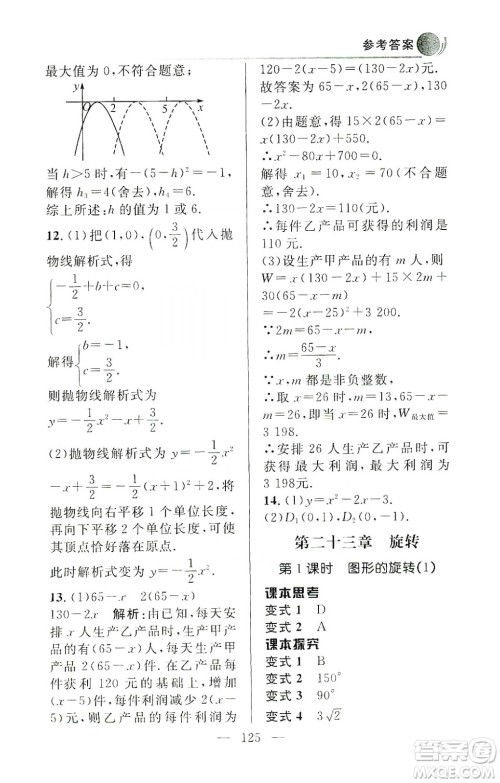 参考答案
最大值为 0,不符合题意;
y
O 2 5 x
当 h＞5 时,有－(5－h)²＝－1,
解得 h₃＝4(舍去),h₄＝6.
综上所述:h 的值为 1 或 6.
12. (1)把(1,0),(0,3/2)代入抛
物线解析式,得
{－1/2＋b＋c＝0,
c＝3/2.
解得{b＝－1,
c＝3/2.
则抛物线解析式为
y＝－1/2x²－x＋3/2.
(2)抛物线解析式为 y＝－1/2x²
－x＋3/2＝－1/2(x＋1)²＋2,将
抛物线向右平移 1 个单位长度,
向下平移 2 个单位长度,可以使
其顶点恰好落在原点.
此时解析式变为 y＝－1/2x².
13. (1)65－x 2(65－x)
130－2x 解析:由已知,每天安
排 x 人生产乙产品时,生产甲产
品的有(65－x)人,共生产甲产
品 2(65－x)件,在乙产品每件
获得 120 元的基础上,增加
(x－5)件,每件利润减少 2(x－5)元,则乙产品每件利润为
120－2(x－5)＝(130－2x)元.
故答案为 65－x;2(65－x);
130－2x.
(2)由题意,得 15×2(65－x)
＝x(130－2x)＋550.
∴x²－80x＋700＝0.
解得 x₁＝10,x₂＝70(不合题
意,舍去).
∴130－2x＝110.
∴每件乙产品可获得的利润是
110 元.
(3)设生产甲产品的有 m 人.
W＝x(130－2x)＋15×2m＋30
＝－2(x－26)²＋3 200.
∵2m＝65－x－m,
∴m＝(65－x)/3.
∵x,m 都是非负整数,
∴取 x＝26 时,m＝13.
65－x－m＝26,即当 x＝26 时,W最大值＝
3 198.
∴安排 26 人生产乙产品时,可
获得最大利润,最大利润为
3 198 元.
14. (1)y＝x²－2x－3.
(2)D₁(0,1),D₂(0,－1).
第二十三章 旋转
第 1 课时 图形的旋转(1)
课本思考
变式 1 D
变式 2 A
课本探究
变式 1 B
变式 2 150°
变式 3 90°
变式 4 3√2
— 125 —